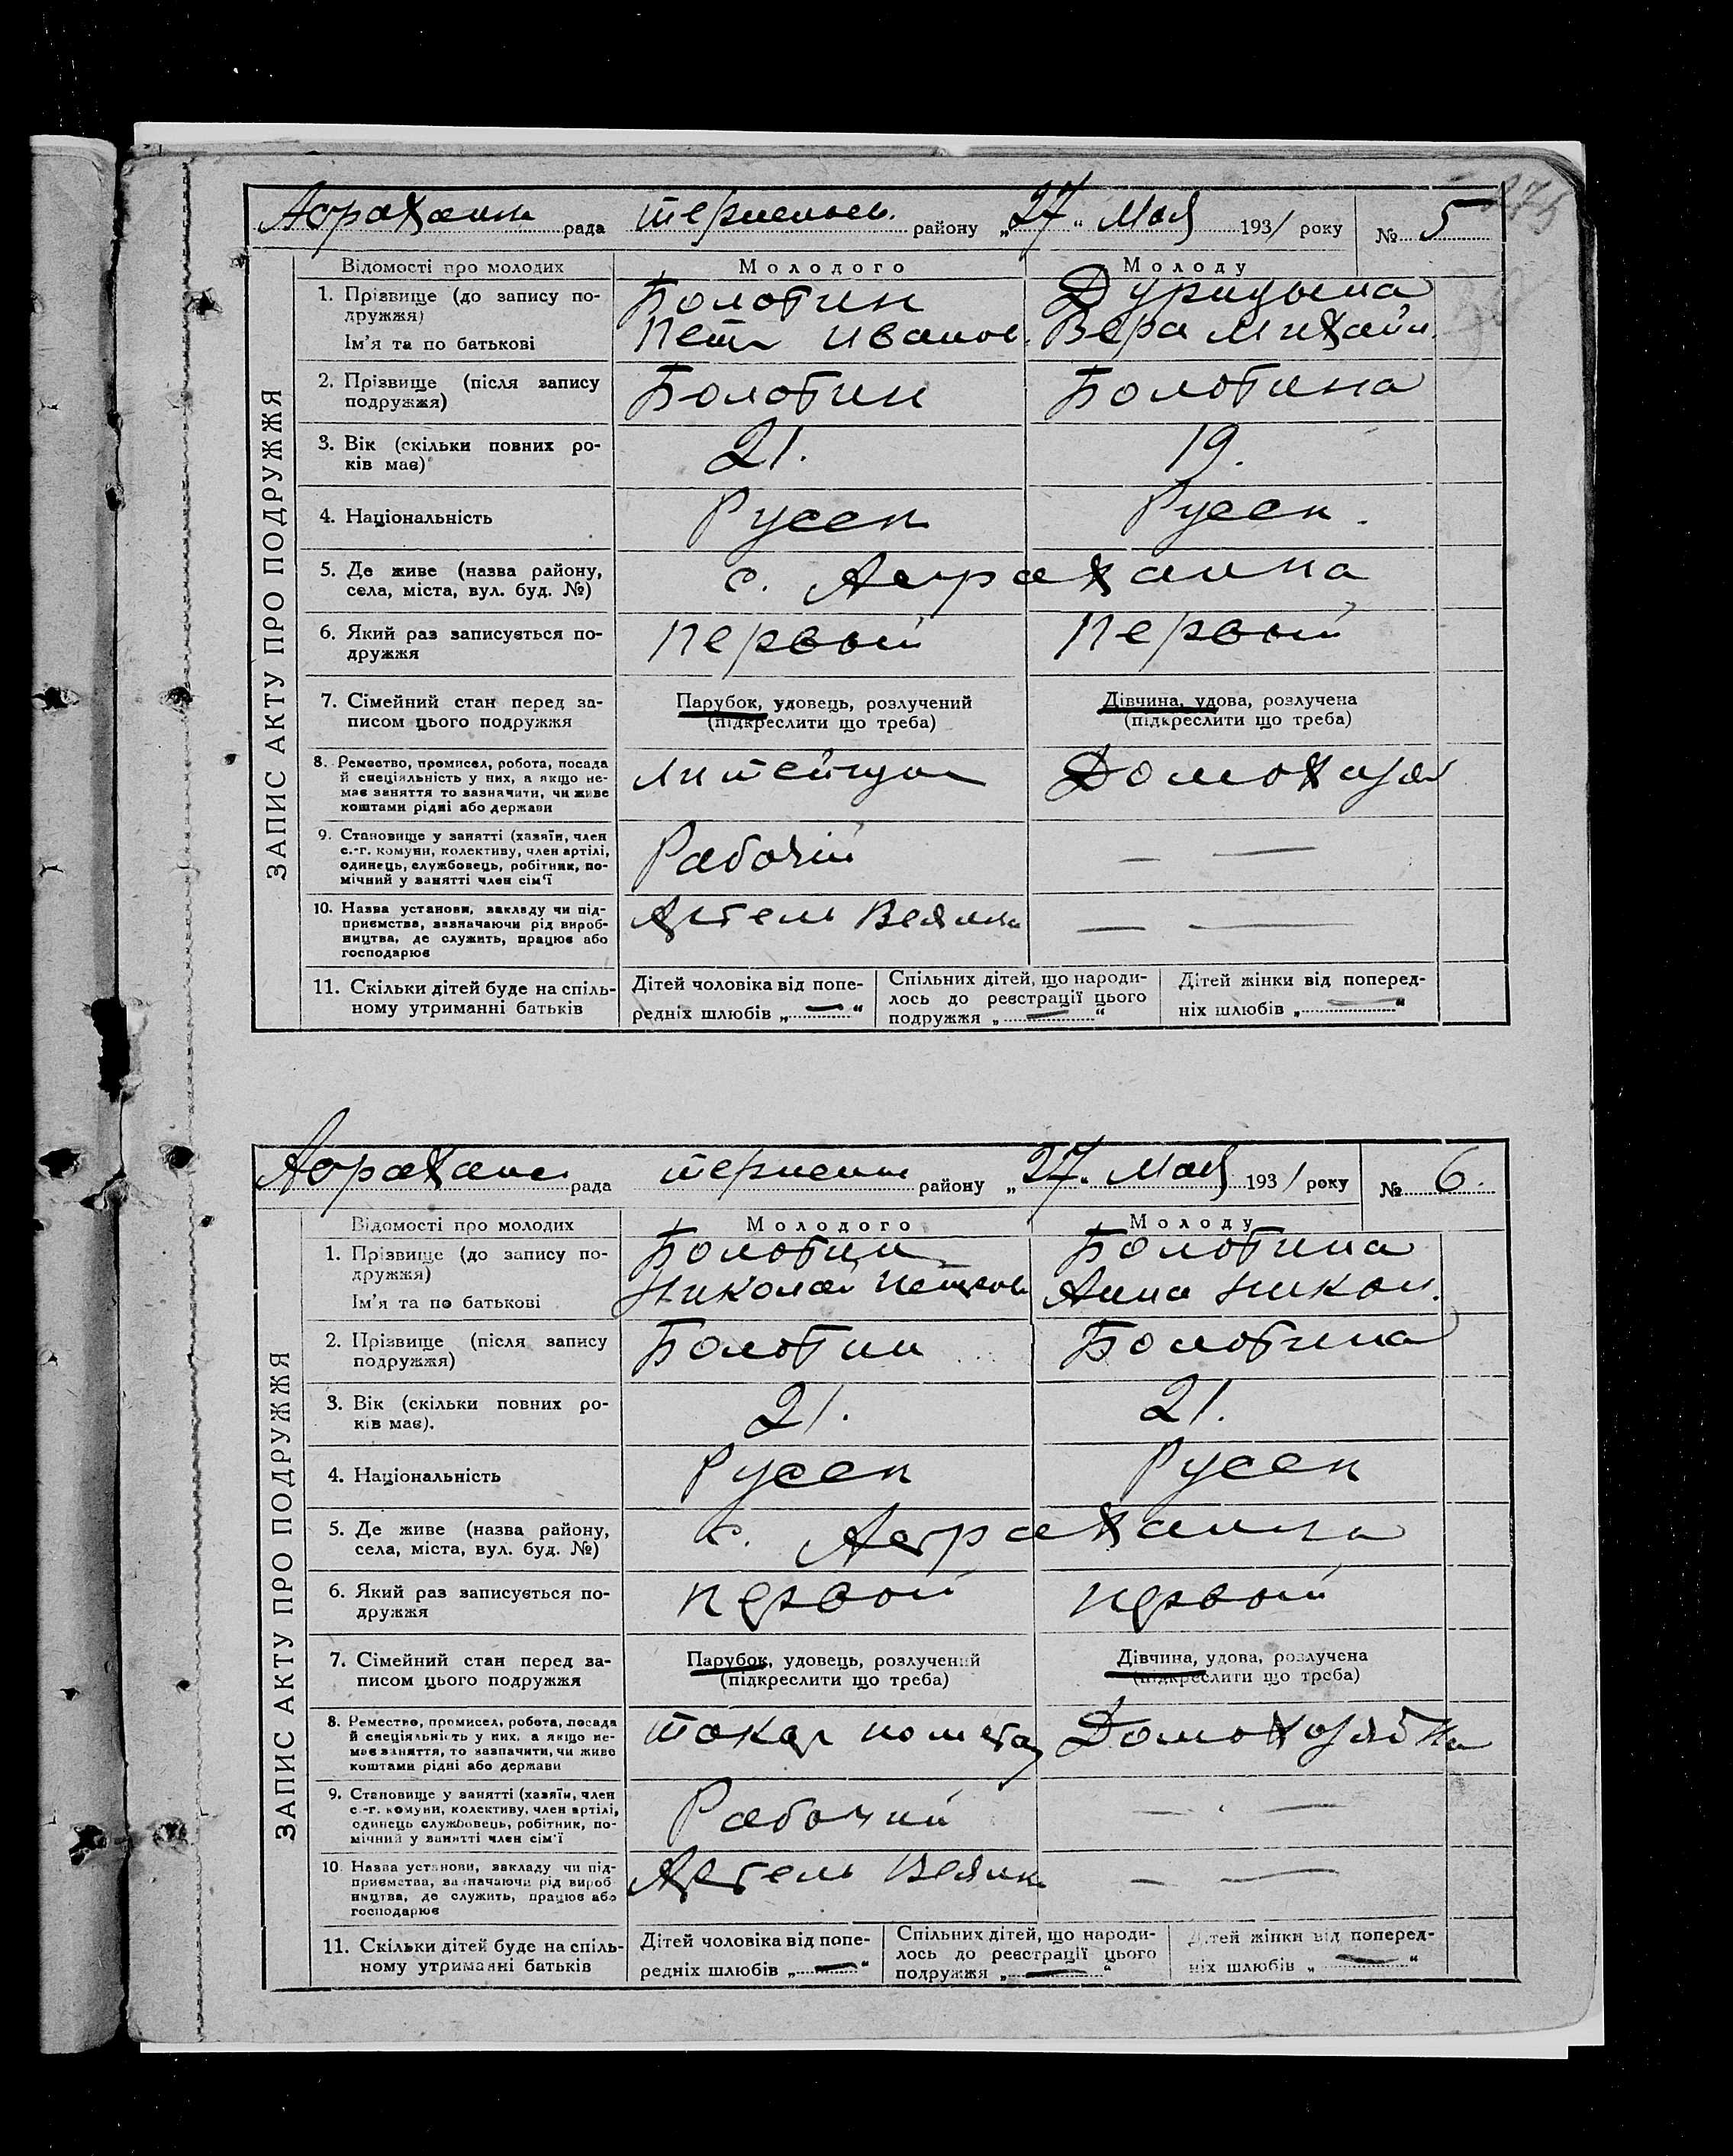 Астраханк рада терпеньев. району „27“ Мая 1931 року № 5
Відомості про молодих Молодого Молоду
1. Прізвище (до запису по- Болотин
дружжя)
Ім’я та по батькові Петр Иванов. Вера Михайл.
2. Прізвище (після запису Болотин Болотина
подружжя)
3. Вік (скільки повних ро- 21. 19.
ків має)
4. Національність Русск Русск.
5. Де живе (назва району, с. Астраханка
села, міста, вул. буд. №)
6. Який раз записується по- Первый Первый
дружжя
7. Сімейний стан перед за- Парубок, удовець, розлучений Дівчина, удова, розлучена
писом цього подружжя (підкреслити що треба) (підкреслити що треба)
8. Ремество, промисел, робота, посада Домохозяй
й спеціяльність у них, а якщо не-
має заняття то зазначити, чи живе
коштами рідні або держави
9. Становище у занятті (хазяїн, член Рабочий — —
с.-г. комуни, колективу, член артілі,
одинець, службовець, робітник, по-
мічний у занятті член сім’ї
10. Назва установи, закладу чи під- Артель — —
приємства, зазначаючи рід вироб-
ництва, де служить, працює або
господарює
11. Скільки дітей буде на спіль- Дітей чоловіка від попе- Спільних дітей, що народи- Дітей жінки від поперед-
ному утриманні батьків редніх шлюбів „—“ лось до реєстрації цього ніх шлюбів „—“
подружжя „—“
ЗАПИС АКТУ ПРО ПОДРУЖЖЯ
Астрахан рада терпеньев району „27. Мая 1931 року № 6.
Відомості про молодих Молодого Молоду
1. Прізвище (до запису по- Болотин Болотина
дружжя)
Ім’я та по батькові Николай Петров Анна Никол.
2. Прізвище (після запису Болотин Болотина
подружжя)
3. Вік (скільки повних ро- 21. 21.
ків має).
4. Національність Русск Русск
5. Де живе (назва району, с. Астраханка
села, міста, вул. буд. №)
6. Який раз записується по- первый первый
дружжя
7. Сімейний стан перед за- Парубок, удовець, розлучений Дівчина, удова, розлучена
писом цього подружжя (підкреслити що треба) (підкреслити що треба)
8. Ремество, промисел, робота, посада токар по мета Домохозяйка
й спеціяльність у них, а якщо не-
має заняття, то зазначити, чи живе
коштами рідні або держави
9. Становище у занятті (хазяїн, член Рабочий — —
с.-г. комуни, колективу, член артілі,
одинець службовець, робітник, по-
мічний у занятті член сім’ї
10. Назва установи, закладу чи під- Артель — —
приємства, зазначаючи рід вироб-
ництва, де служить, працює або
господарює
11. Скільки дітей буде на спіль- Дітей чоловіка від попе- Спільних дітей, що народи- Дітей жінки від поперед-
ному утриманні батьків редніх шлюбів „—“ лось до реєстрації цього ніх шлюбів „—“
подружжя „—“
ЗАПИС АКТУ ПРО ПОДРУЖЖЯ